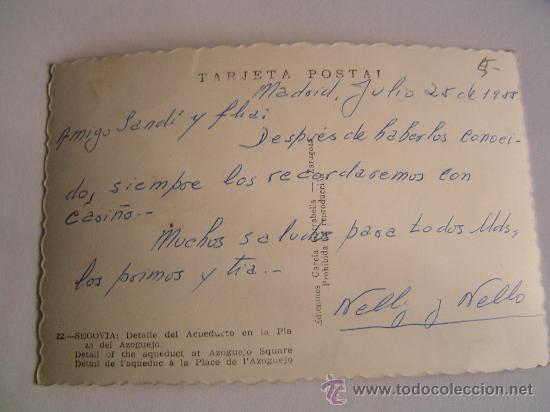 5-
TARJETA POSTAL
Madrid, Julio 25 de 1955
Amigo Sandí y flia:
Después de haberlos conoci-
dos, siempre los recordaremos con
cariño.-
Muchos saludos para todos Uds,
los primos y tía.-
Nelly y Nello
Ediciones García Garrabella — Zaragoza
Prohibida la reproducción
22.—SEGOVIA: Detalle del Acueducto en la Pla
za del Azoguejo.
Detail of the aqueduct at Azoguejo Square
Détail de l'aqueduc à la Place de l'Azoguejo
© todocoleccion
www.todocoleccion.com